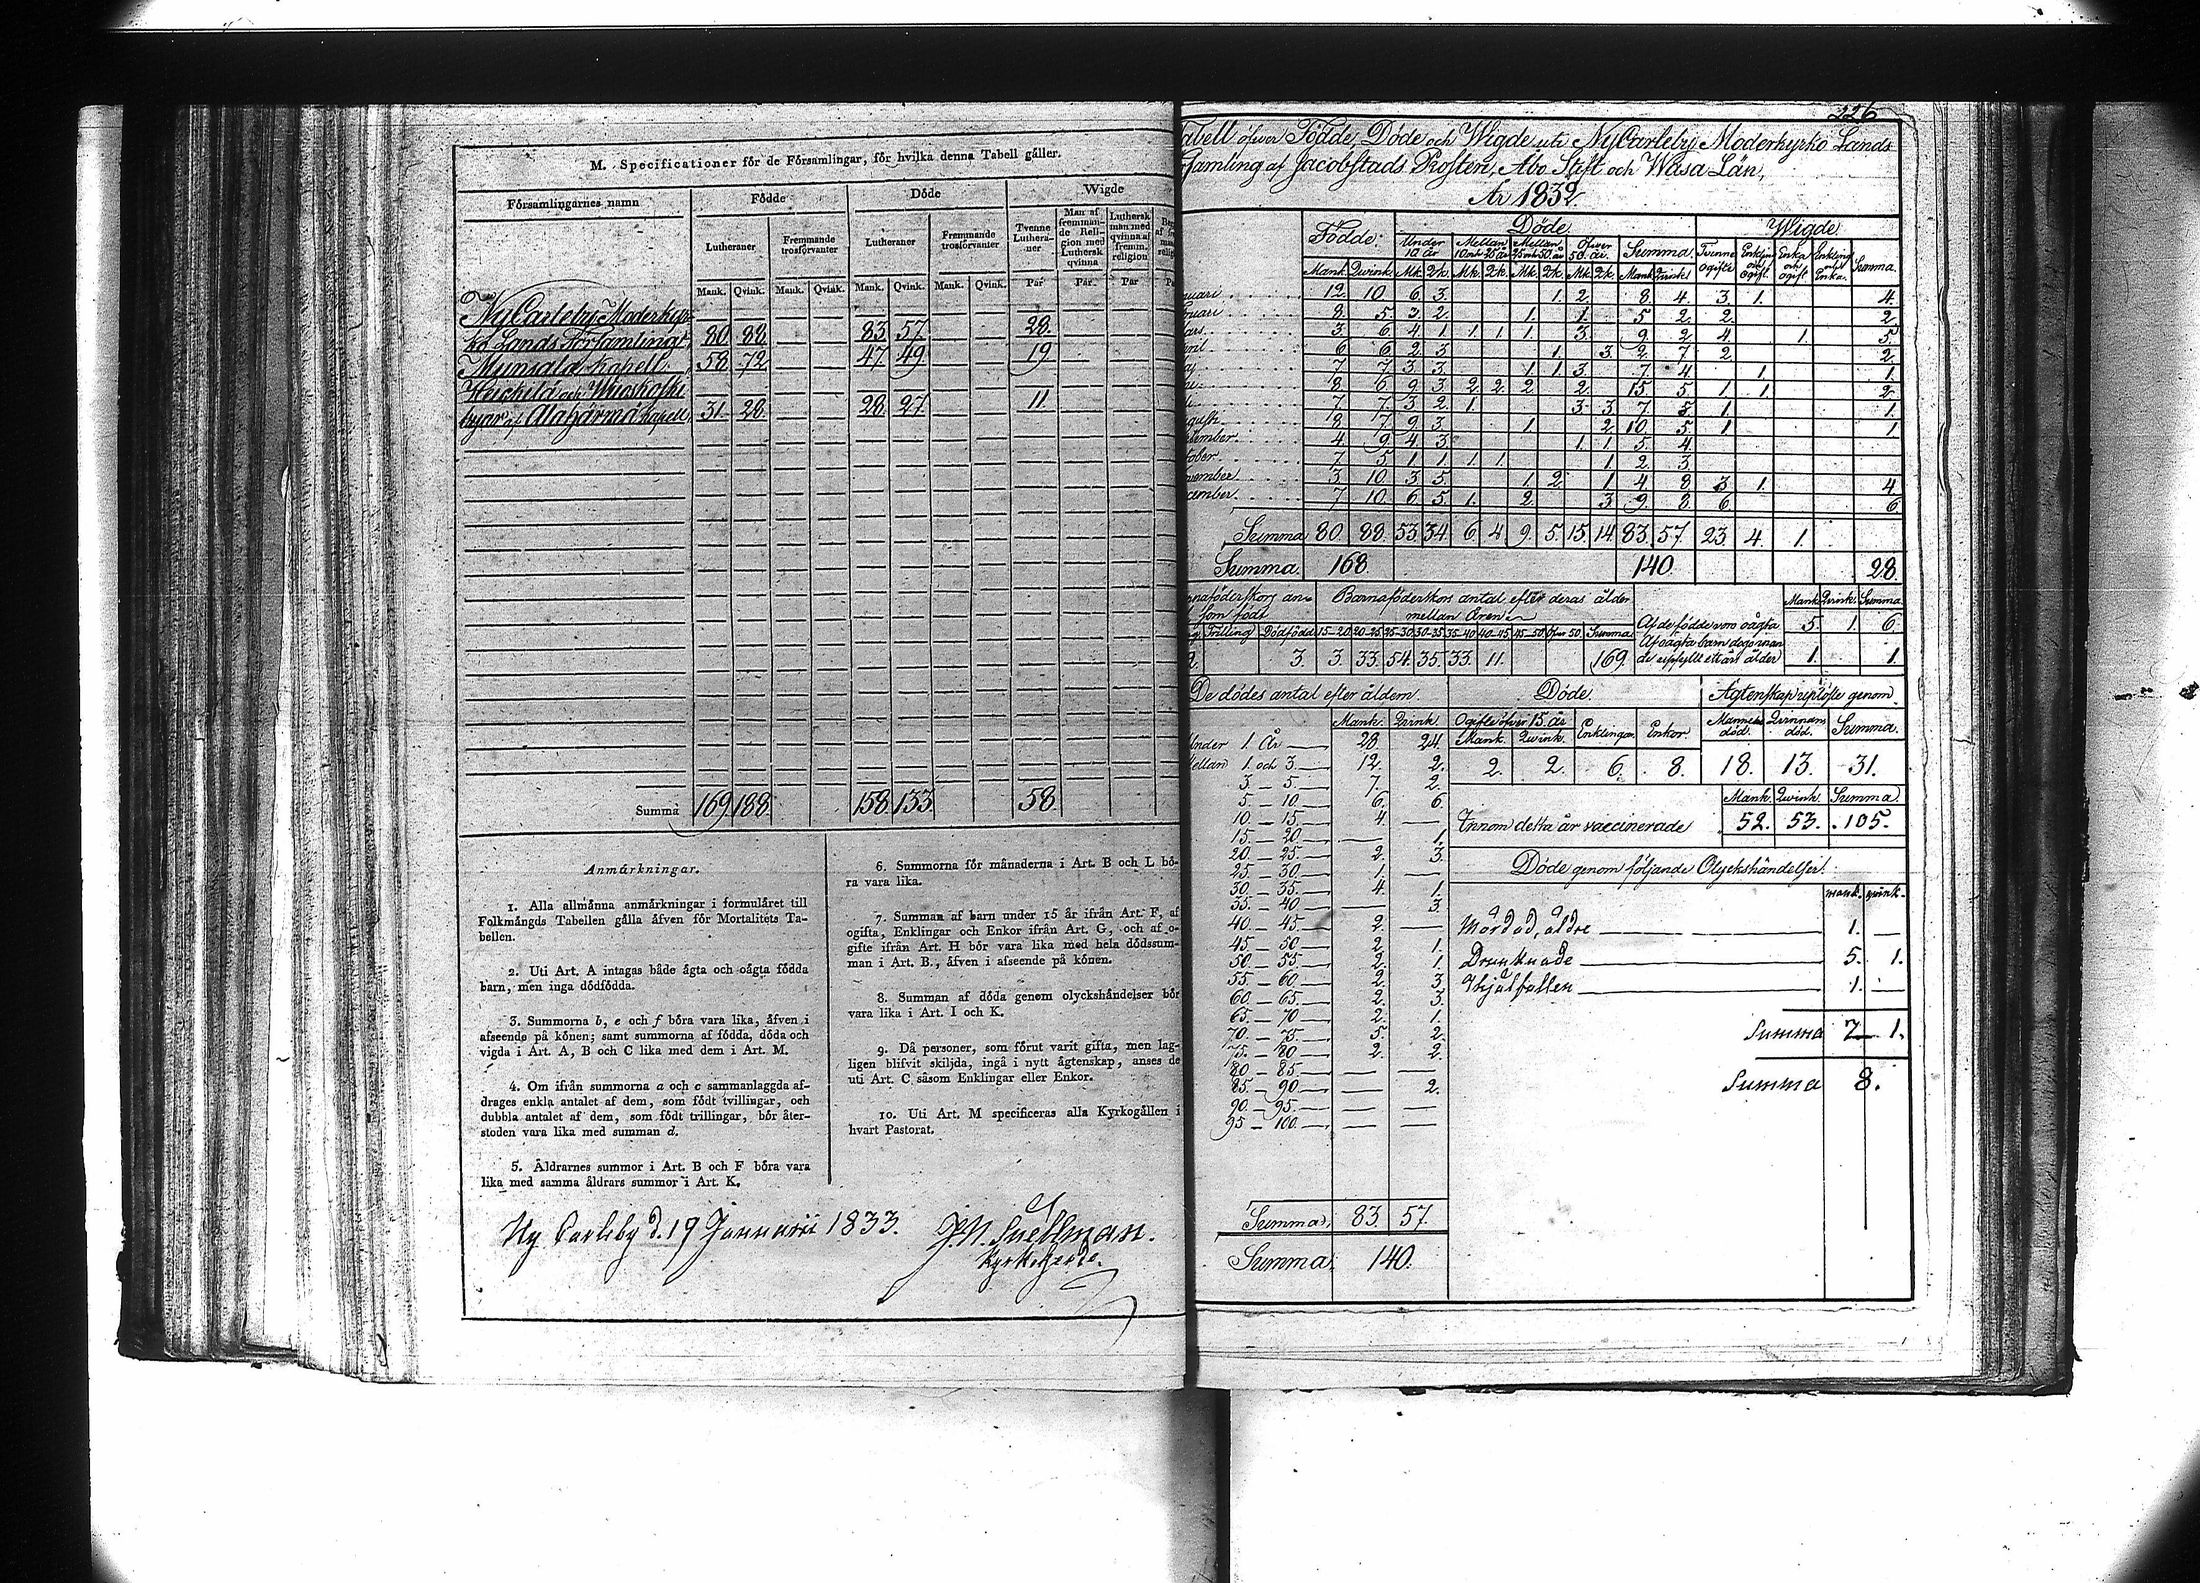 M. Specificationer för de Församlingar, för hvilka denna Tabell gäller.
Församlingarnes namn Födde Döde Wigde
Lutheraner Fremmande trosförvanter Lutheraner Fremmande trosförvanter Tvenne Lutheraner Man af fremmande Religion med Luthersk qvinna Luthersk man med qvinna af fremm. religion
Mank. Qvink. Mank. Qvink. Mank. Qvink. Mank. Qvink. Par Par. Par
NyCarleby Moderkyr-
ko Lands Församling 80 88 83 57 28
Munsala Kapell 58 72 47 49 19
Heickilä och Wuoskoski
byar af Alahärmä Kapell, 31 28 28 27 11
Summa 169 188 158 133 58
Anmärkningar.
1. Alla allmänna anmärkningar i formuläret till
Folkmängds Tabellen gälla äfven för Mortalitets Ta-
bellen.
2. Uti Art. A intagas både ägta och oägta födda
barn, men inga dödfödda.
3. Summorna b, e och f böra vara lika, äfven i
afseende på könen; samt summorna af födda, döda och
vigda i Art. A, B och C lika med dem i Art. M.
4. Om ifrån summorna a och c sammanlaggda af-
drages enkla antalet af dem, som födt tvillingar, och
dubbla antalet af dem, som födt trillingar, bör åter-
stoden vara lika med summan d.
5. Åldrarnes summor i Art. B och F böra vara
lika med samma åldrars summor i Art. K.
6. Summorna för månaderna i Art. B och L bö-
ra vara lika.
7. Summan af barn under 15 år ifrån Art. F, af
ogifta, Enklingar och Enkor ifrån Art. G, och af o-
gifte ifrån Art. H bör vara lika med hela dödssum-
man i Art. B., äfven i afseende på könen.
8. Summan af döda genom olyckshändelser bör
vara lika i Art. I och K.
9. Då personer, som förut varit gifta, men lag-
ligen blifvit skiljda, ingå i nytt ägtenskap, anses de
uti Art. C såsom Enklingar eller Enkor.
10. Uti Art. M specificeras alla Kyrkogällen i
hvart Pastorat.
Ny Carleby d. 19 Januarii 1833. J.N. Snellman.
Kyrkoherde.
226
abell öfver Födde, Döde och Wigde uti NyCarleby Moderkyrko Lands
samling af Jacobstads Prosteri, Åbo Stift och Wasa Län,
År 1832
Födde. Döde. Wigde.
Under 10 år Mellan 10 och 25 år Mellan 25 och 50 år Öfver 50 år. Summa. Tvenne ogifte Enkling och ogift. Enka och ogift Enkling och Enka. Summa.
Mank. Qvink. Mk. Qk. Mk. Qk. Mk. Qk. Mk. Qk. Mank. Qvink.
nuari 12. 10. 6. 3. 1. 2. 8. 4. 3. 1. 4.
ruari 8. 5. 3. 2. 1. 1. 5. 2. 2. 2.
ars 3. 6. 4. 1. 1. 1. 1. 3. 9. 2. 4. 1. 5.
ril 6. 6. 2. 3. 1. 3. 2. 7. 2. 2.
7. 7. 3. 3. 1. 1. 3. 7. 4. 1. 1.
8. 6. 9. 3. 2. 2. 2. 2. 15. 5. 1. 1. 2.
7. 7. 3. 2. 1. 3. 3. 7. 5. 1. 1.
gusti 8. 7. 9. 3. 1. 2. 10. 5. 1. 1.
tember 4. 9. 4. 3. 1. 1. 5. 4.
tober 7. 5. 1. 1. 1. 1. 1. 2. 3.
vember 3. 10. 3. 5. 1. 2. 1. 4. 8. 3. 1. 4.
cember 7. 10. 6. 5. 1. 2. 3. 9. 8. 6. 6.
Summa 80. 88. 53. 34. 6. 4. 9. 5. 15. 14. 83. 57. 23. 4. 1.
Summa. 168. 140. 28.
rnaföderskors an- Barnaföderskors antal efter deras ålder Mank. Qvink. Summa.
som födt mellan Åren
Trilling Dödfödde 15-20. 20-25. 25-30. 30-35. 35-40. 40-45. 45-50. öfver 50. Summa. Af de födde voro oägta 5. 1. 6.
2. 3. 3. 33. 54. 35. 33. 11. 169. Af oägta barn dogo innan
de uppfyllt ett års ålder 1. 1.
De dödes antal efter åldern. Döde. Ägtenskap uplöste genom
Mank. Qvink. Ogifte öfver 15. år Enklingar. Enkor. Mannens död. Qvinnans död. Summa.
Mank. Qvink.
2. 2. 6. 8. 18. 13. 31.
Under 1. År 28. 24.
Mellan 1. och 3. 12. 2.
3. - 5. 7. 2.
5. - 10. 6. 6
10. - 15. 4. —
15. - 20. — 1.
20. - 25. 2. 3.
25. - 30. 1. —
30. - 35. 4. 1.
35. - 40. — 3.
40. - 45. 2. —
45. - 50. 2. 1.
50. - 55. 2. 1.
55. - 60. 2. 3.
60. - 65. 2. 3.
65. - 70. 2. 1.
70. - 75. 5. 2.
75. - 80. 2. 2.
80. - 85. — —
85. - 90. — 2.
90. - 95. — —
95. - 100. — —
Summa. 83. 57.
Summa. 140.
Mank. Qvink. Summa.
Innom detta år vaccinerade 52. 53. 105.
Döde genom följande Olyckshändelser.
mank. qvink.
Mördad, äldre 1. —
Drunknade 5. 1.
Ihjälfallen 1. —
Summa 7 — 1.
Summa 8.